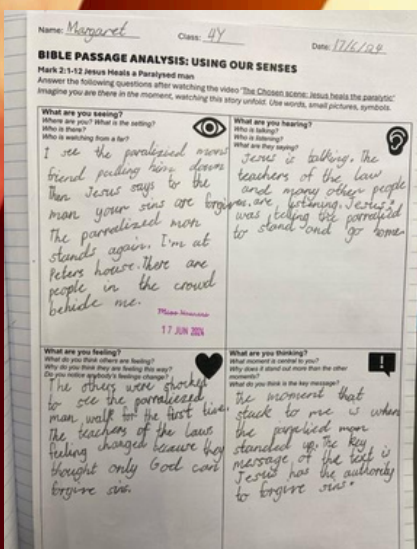 Name: Margaret Class: 4Y Date: 17/6/24
BIBLE PASSAGE ANALYSIS: USING OUR SENSES
Mark 2:1-12 Jesus Heals a Paralysed man
Answer the following questions after watching the video 'The Chosen scene: Jesus heals the paralytic'
Imagine you are there in the moment, watching this story unfold. Use words, small pictures, symbols.
What are you seeing?
Where are you? What is the setting?
Who is there?
Who is watching from a far?
I see the paralizied mans
friend pulling him down
Then Jesus says to the
man your sins are forgiven.
The parralized man
stands again. I'm at
Peters house. There are
people in the crowd
behide me.
17 JUN 2024
What are you hearing?
Who is talking?
Who is listening?
What are they saying?
Jesus is talking. The
teachers of the law
and many other people
are listening. Jesus
was telling the parralied
to stand and go home
What are you feeling?
What do you think others are feeling?
Why do you think they are feeling this way?
Do you notice anybody's feelings change?
The others were shocked
to see the parraliezed
man walk for the first time.
The teachers of the laws
feeling changed because they
thought only God can
forgive sins.
What are you thinking?
What moment is central to you?
Why does it stand out more than the other
moments?
What do you think is the key message?
the moment that
stuck to me is when
the parralied man
standed up. The key
message of the text is
Jesus has the authority
to forgive sins.